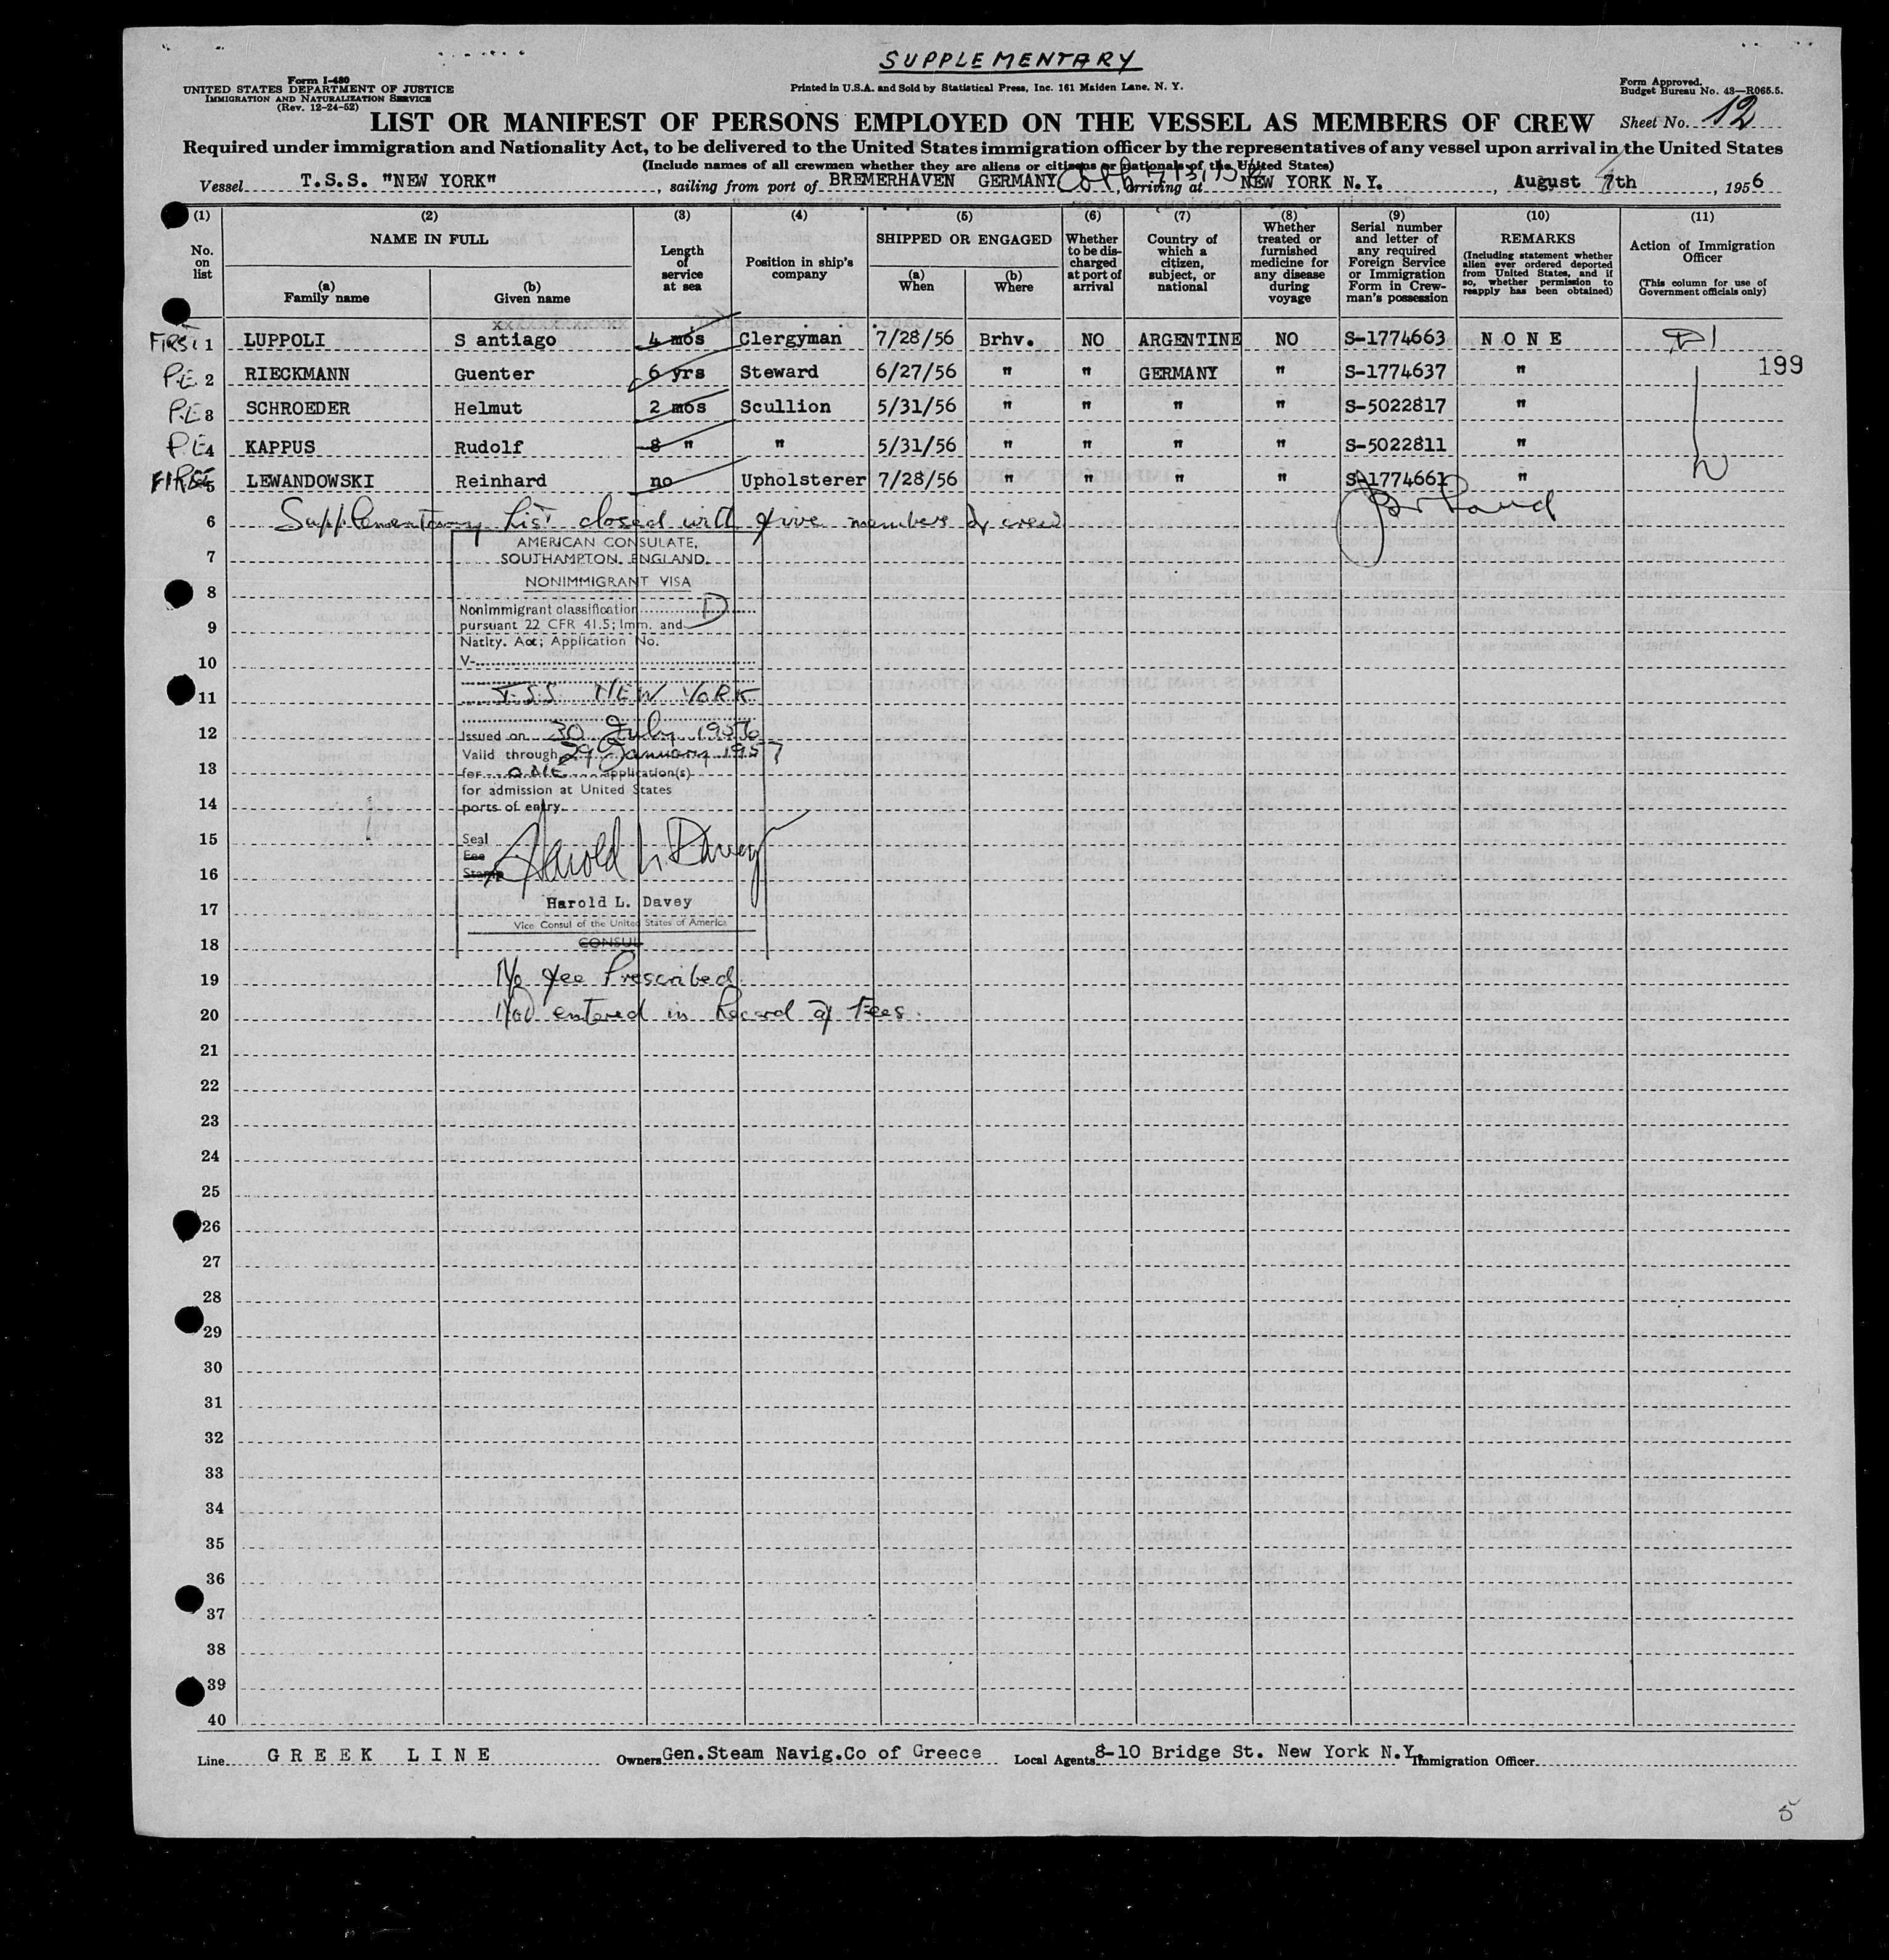 SUPPLEMENTARY
Form I-480
UNITED STATES DEPARTMENT OF JUSTICE
IMMIGRATION AND NATURALIZATION SERVICE
(Rev. 12-24-52)
Printed in U.S.A. and Sold by Statistical Press, Inc. 161 Maiden Lane, N. Y.
Form Approved.
Budget Bureau No. 43—R065.5.
LIST OR MANIFEST OF PERSONS EMPLOYED ON THE VESSEL AS MEMBERS OF CREW
Sheet No. 12
Required under immigration and Nationality Act, to be delivered to the United States immigration officer by the representatives of any vessel upon arrival in the United States
(Include names of all crewmen whether they are aliens or citizens or nationals of the United States)
Vessel T.S.S. "NEW YORK", sailing from port of BREMERHAVEN GERMANY, arriving at NEW YORK N.Y., August th, 1956
(1) (2) (3) (4) (5) (6) (7) (8) (9) (10) (11)
No. on list
NAME IN FULL
(a) Family name
(b) Given name
Length of service at sea
Position in ship's company
SHIPPED OR ENGAGED
(a) When
(b) Where
Whether to be discharged at port of arrival
Country of which a citizen, subject, or national
Whether treated or furnished medicine for any disease during voyage
Serial number and letter of any required Foreign Service or Immigration Form in Crewman's possession
REMARKS
(Including statement whether alien ever ordered deported from United States, and if so, whether permission to reapply has been obtained)
Action of Immigration Officer
(This column for use of Government officials only)
FIRST 1 LUPPOLI S antiago 4 mos Clergyman 7/28/56 Brhv. NO ARGENTINE NO S-1774663 N O N E D1
P.E 2 RIECKMANN Guenter 6 yrs Steward 6/27/56 " " GERMANY " S-1774637 " 199
P.E 3 SCHROEDER Helmut 2 mos Scullion 5/31/56 " " " " S-5022817 "
P.E 4 KAPPUS Rudolf 8 " " 5/31/56 " " " " S-5022811 "
FIRST 5 LEWANDOWSKI Reinhard no Upholsterer 7/28/56 " " " " S-1774661 "
6 Supplementary List closed with five members of crew
7
8
9
10
11
12
13
14
15
16
17
18
19
20
21
22
23
24
25
26
27
28
29
30
31
32
33
34
35
36
37
38
39
40
AMERICAN CONSULATE,
SOUTHAMPTON, ENGLAND.
NONIMMIGRANT VISA
Nonimmigrant classification D
pursuant 22 CFR 41.5; Imm. and
Natity. Act; Application No.
V-
T.S.S. NEW YORK
Issued on 30 July 1956
Valid through 29 January 1957
for ONE application(s)
for admission at United States
ports of entry.
Seal
Fee
Stamp
Harold L. Davey
Harold L. Davey
Vice Consul of the United States of America
CONSUL
No fee Prescribed
Not entered in Record of Fees.
Line GREEK LINE Owners Gen.Steam Navig.Co of Greece Local Agents 8-10 Bridge St. New York N.Y. Immigration Officer
5